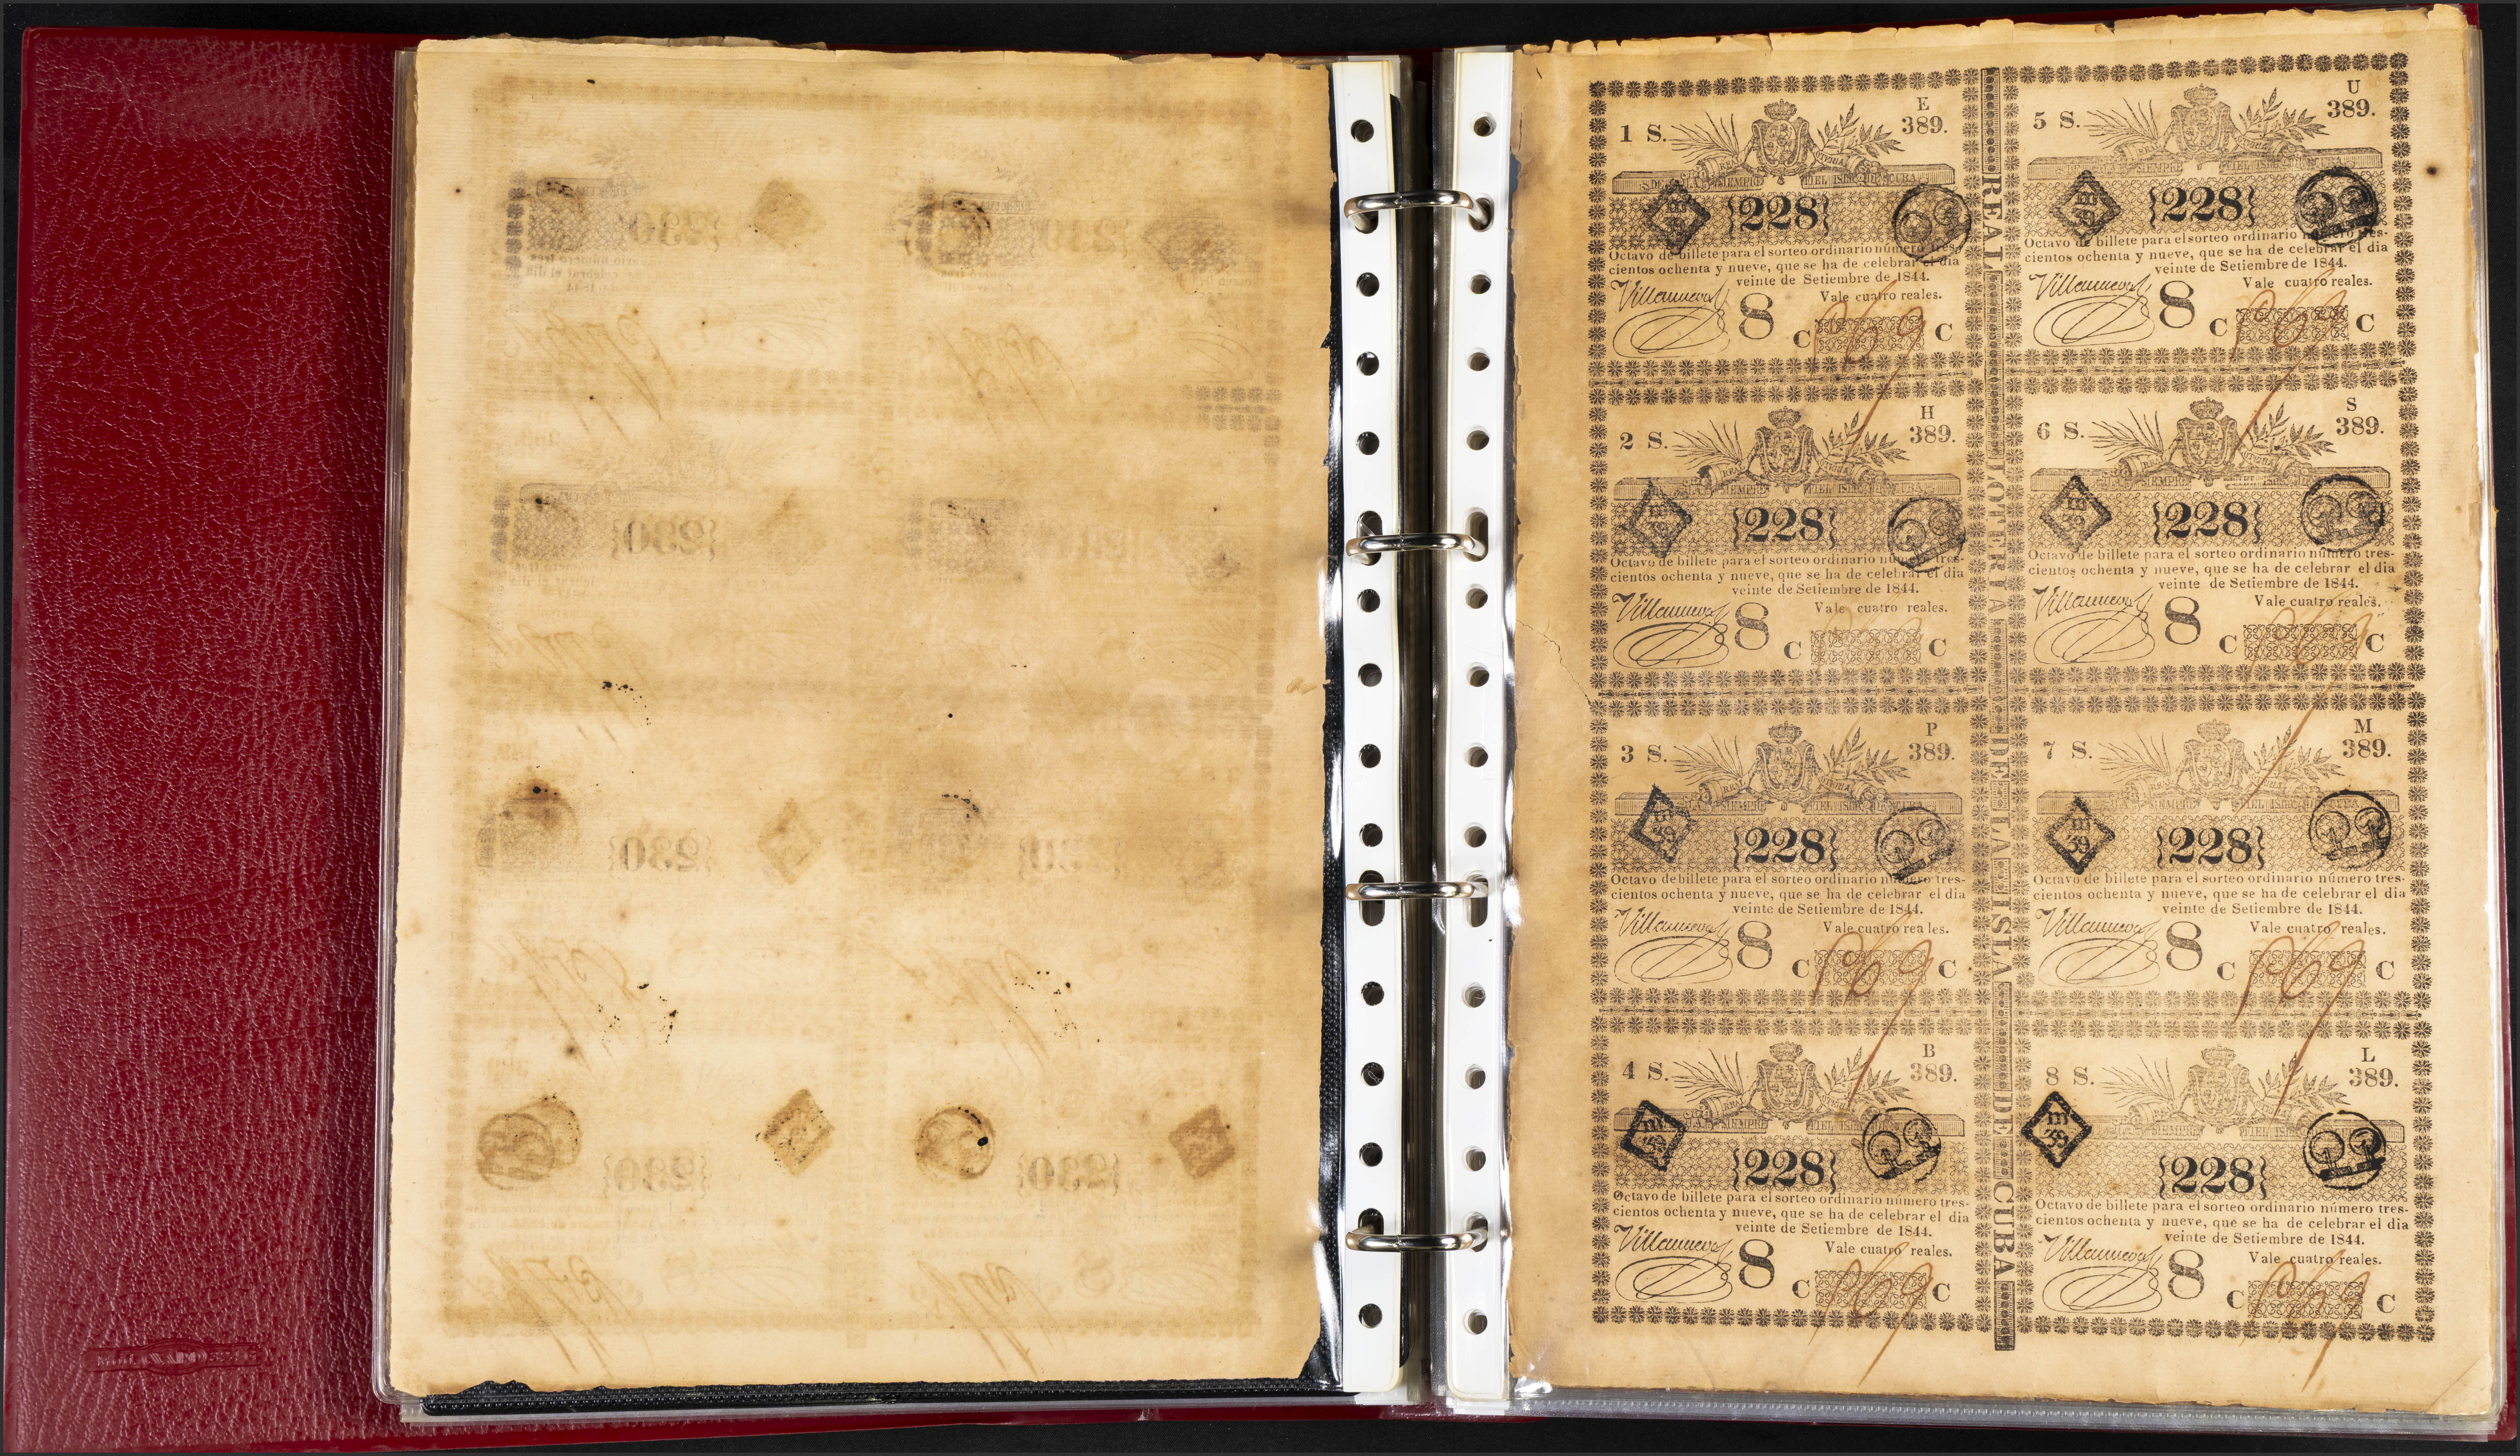 E
1 S. 389.
SIEMPRE FIEL ISLA DE CUBA
{228}
Octavo de billete para el sorteo ordinario número tres-
cientos ochenta y nueve, que se ha de celebrar el dia
veinte de Setiembre de 1844.
Villanueva 8 Vale cuatro reales.
C 969 C
H
2 S. 389.
SIEMPRE FIEL ISLA DE CUBA
m 39
{228}
Octavo de billete para el sorteo ordinario número tres-
cientos ochenta y nueve, que se ha de celebrar el dia
veinte de Setiembre de 1844.
Villanueva 8 Vale cuatro reales.
C C
P
3 S. 389.
SIEMPRE FIEL ISLA DE
39
{228}
Octavo de billete para el sorteo ordinario número tres-
cientos ochenta y nueve, que se ha de celebrar el dia
veinte de Setiembre de 1844.
Villanueva 8 Vale cuatro rea les.
C 969 C
B
4 S. 389.
SIEMPRE FIEL ISLA
m 39
{228}
Octavo de billete para el sorteo ordinario número tres-
cientos ochenta y nueve, que se ha de celebrar el dia
veinte de Setiembre de 1844.
Villanueva 8 Vale cuatro reales.
C 969 C
REAL LOTERIA DE LA ISLA DE CUBA
U
5 S. 389.
SIEMPRE FIEL ISLA DE CUBA
m 39
{228}
Octavo de billete para el sorteo ordinario número tres-
cientos ochenta y nueve, que se ha de celebrar el dia
veinte de Setiembre de 1844.
Villanueva 8 Vale cuatro reales.
C 969 C
S
6 S. 389.
SIEMPRE FIEL ISLA
m 39
{228}
Octavo de billete para el sorteo ordinario número tres-
cientos ochenta y nueve, que se ha de celebrar el dia
veinte de Setiembre de 1844.
Villanueva 8 Vale cuatro reales.
C 969 C
M
7 S. 389.
SIEMPRE FIEL ISLA DE CUBA
m 39
{228}
Octavo de billete para el sorteo ordinario número tres-
cientos ochenta y nueve, que se ha de celebrar el dia
veinte de Setiembre de 1844.
Villanueva 8 Vale cuatro reales.
C 969 C
L
8 S. 389.
SIEMPRE FIEL ISLA
m 39
{228}
Octavo de billete para el sorteo ordinario número tres-
cientos ochenta y nueve, que se ha de celebrar el dia
veinte de Setiembre de 1844.
Villanueva 8 Vale cuatro reales.
C 969 C